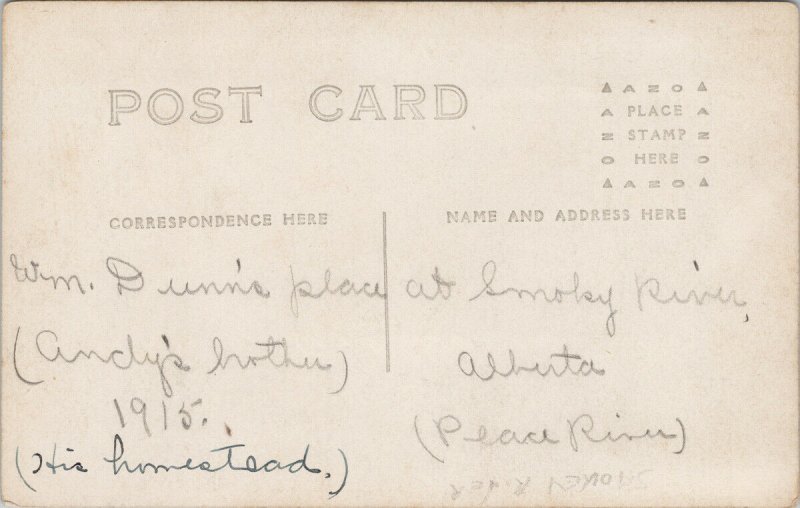 POST CARD
▲ A Z O ▲
A PLACE A
Z STAMP Z
O HERE O
▲ A Z O ▲
CORRESPONDENCE HERE
NAME AND ADDRESS HERE
Wm. Dunn's place at Smoky River,
(Andy's brother)
Alberta
1915.
(Peace River)
(His homestead.)